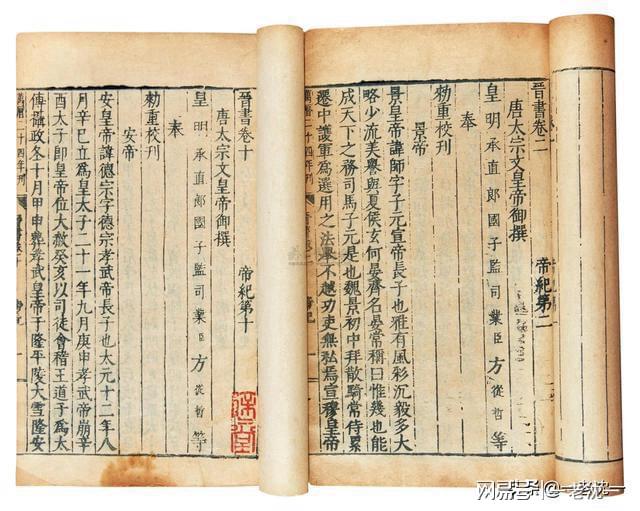 晉書卷二
帝紀第二
唐太宗文皇帝御撰
皇明承直郎國子監司業臣方從哲等
奉
勑重校刊
景帝
景皇帝諱師字子元宣帝長子也雅有風彩沉毅多大
略少流美譽與夏侯玄何晏齊名晏常稱曰惟幾也能
成天下之務司馬子元是也魏景初中拜散騎常侍累
遷中護軍為選用之法舉不越功吏無私焉宣穆皇帝
萬曆二十四年刊
晉書卷十
帝紀第十
唐太宗文皇帝御撰
皇明承直郎國子監司業臣方從哲等
奉
勑重校刊
安帝
安皇帝諱德宗字德宗孝武帝長子也太元十二年八
月辛巳立為皇太子二十一年九月庚申孝武帝崩辛
酉太子即皇帝位大赦癸亥以司徒會稽王道子為太
傅攝政冬十月甲申葬孝武皇帝于隆平陵大雪隆安
萬曆二十四年刊
网易号
头条
@一老沈一